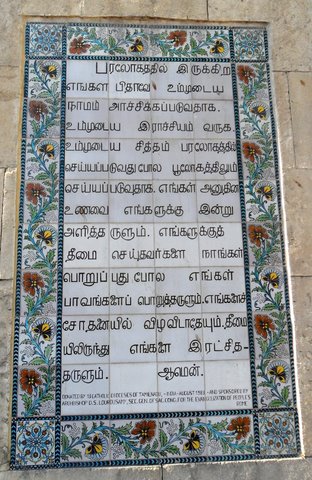 பரலோகத்தில் இருக்கிற
எங்கள் பிதாவே உம்முடைய
நாமம் அர்ச்சிக்கப்படுவதாக.
உம்முடைய இராச்சியம் வருக.
உம்முடைய சித்தம் பரலோகத்தில்
செய்யப்படுவதுபோல பூலோகத்திலும்
செய்யப்படுவதாக. எங்கள் அனுதின
உணவை எங்களுக்கு இன்று
அளித்தருளும். எங்களுக்குத்
தீமை செய்தவர்களை நாங்கள்
பொறுப்பது போல எங்கள்
பாவங்களைப் பொறுத்தருளும். எங்களைச்
சோதனையில் விழவிடாதேயும். தீமை
யிலிருந்து எங்களை இரட்சித்
தருளும். ஆமென்.
DONATED BY 13 CATHOLIC DIOCESES OF TAMILNADU, - INDIA - AUGUST 1983, - AND SPONSORED BY
ARCHBISHOP D.S. LOURDUSAMY, SEC. GEN. OF SAC. CONG. FOR THE EVANGELIZATION OF PEOPLES
ROME